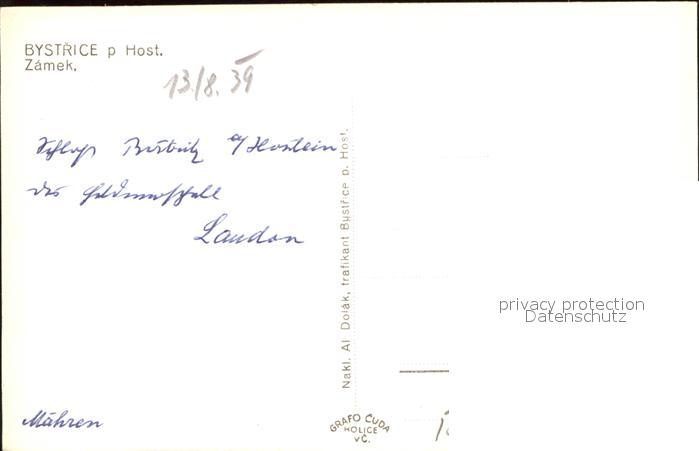 BYSTŘICE p Host.
Zámek.
13./8. 39
Schloß Bistritz a/Hostein
des Feldmarschall
Laudon
Mähren
Nakl. Al Dolák, trafikant Bystřice p. Host.
GRAFO ČUDA
HOLICE
V Č.
privacy protection
Datenschutz